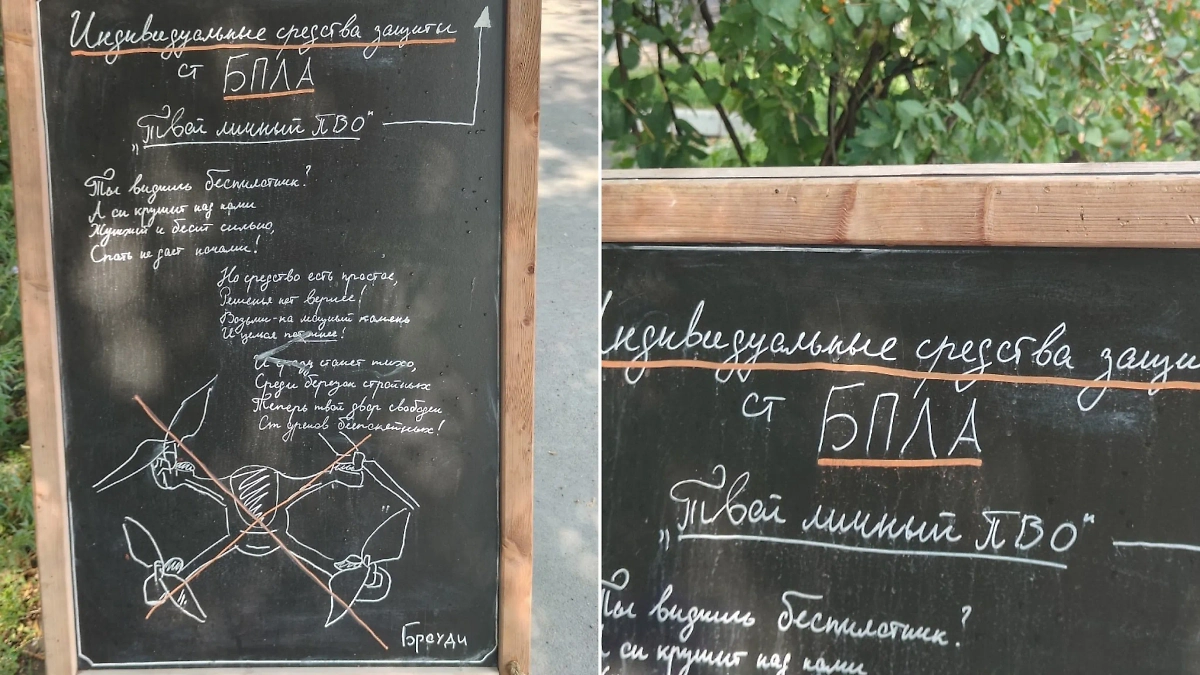 Индивидуальные средства защиты
от БПЛА
„Твой личный ПВО“
Ты видишь беспилотник?
А он кружит над нами
Жужжит и бесит сильно,
Спать не дает ночами!
Но средство есть простое,
Решенья нет вернее!
Возьми-ка мощный камень
И целься поточнее!
И сразу станет тихо,
Среди березок стройных
Теперь твой двор свободен
От дронов беспокойных!
Брауди
Индивидуальные средства защи
от БПЛА
„Твой личный ПВО“
Ты видишь беспилотник?
А он кружит над нами